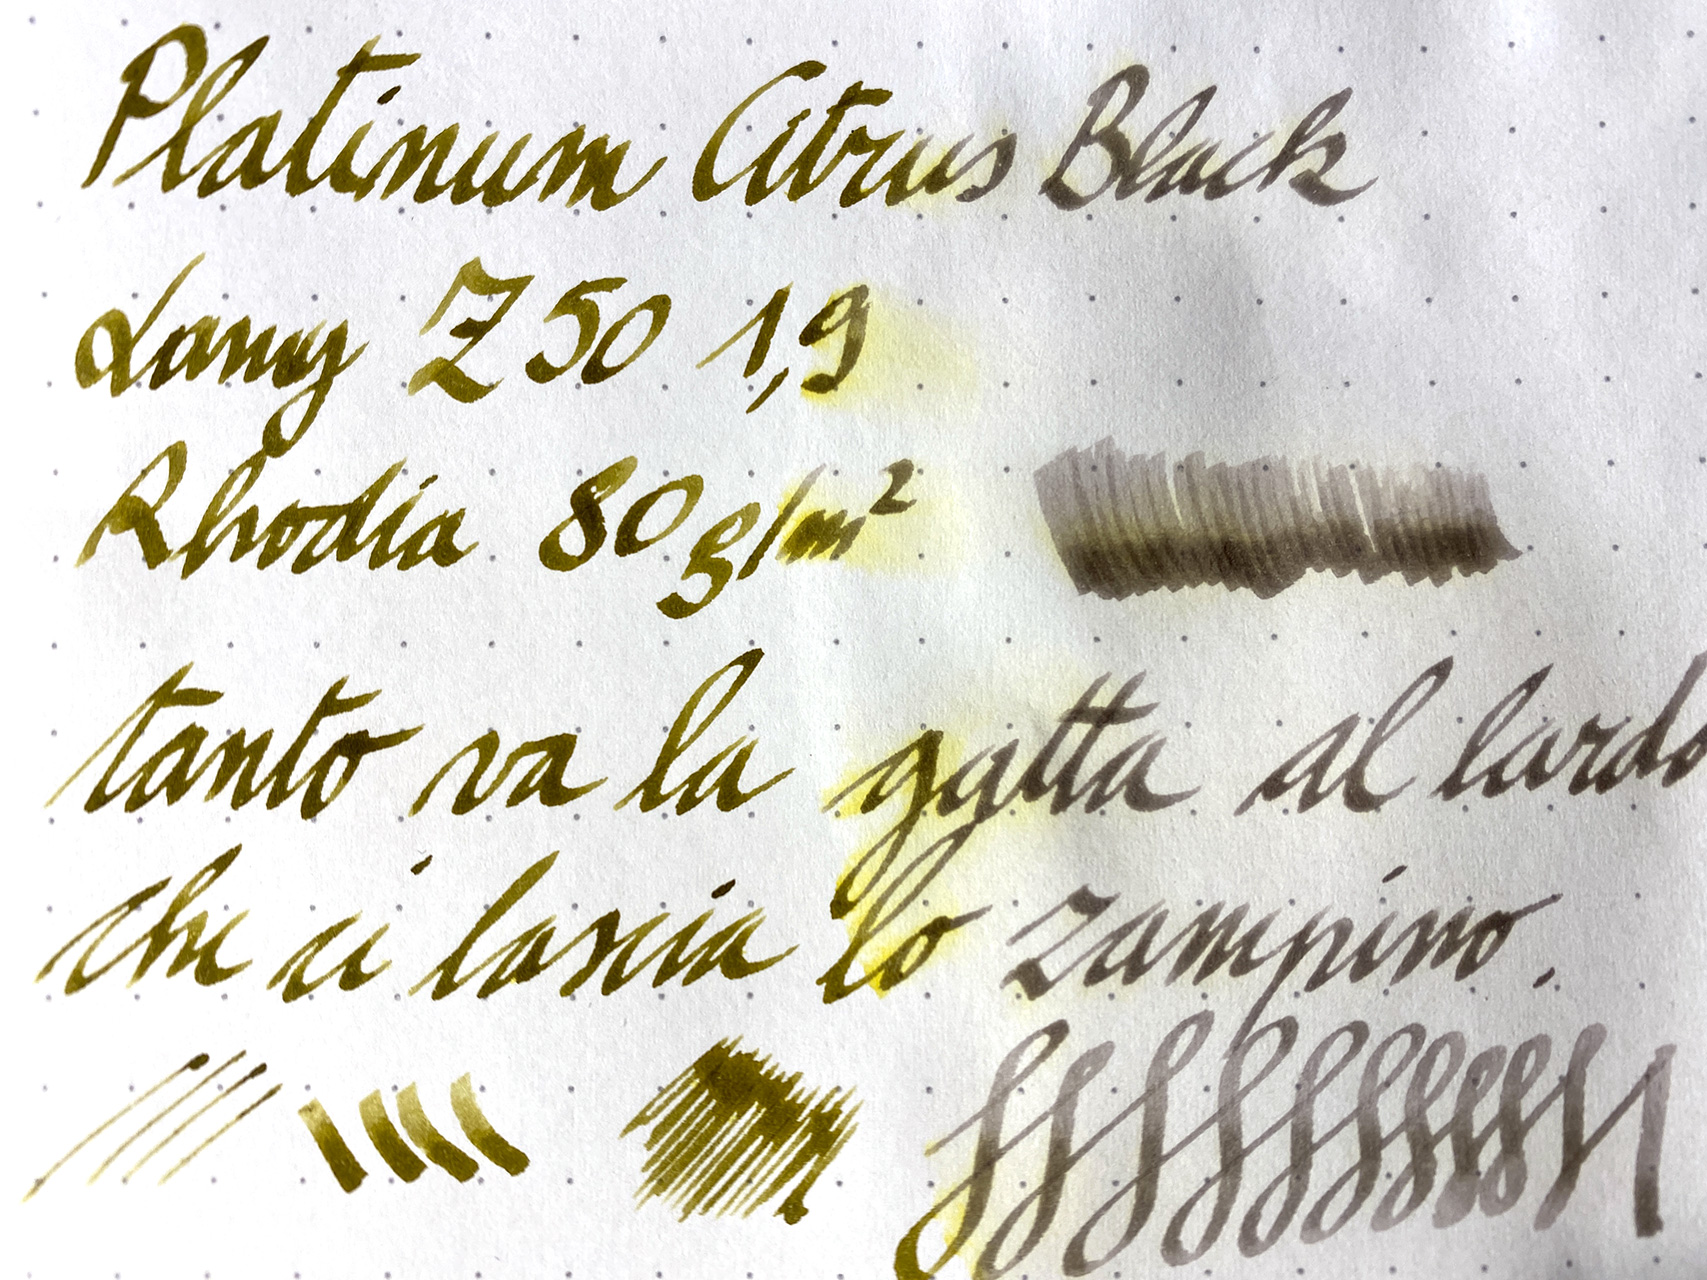 Platinum Citrus Black
Lamy Z50 1,9
Rhodia 80g/m²
tanto va la gatta al lardo
che ci lascia lo zampino.